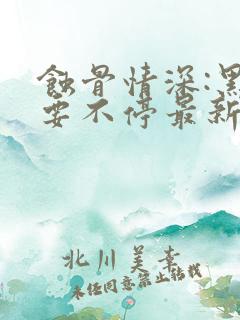 蚀骨情深:黑
要不停最新
北川美幸
未经同意禁止转载